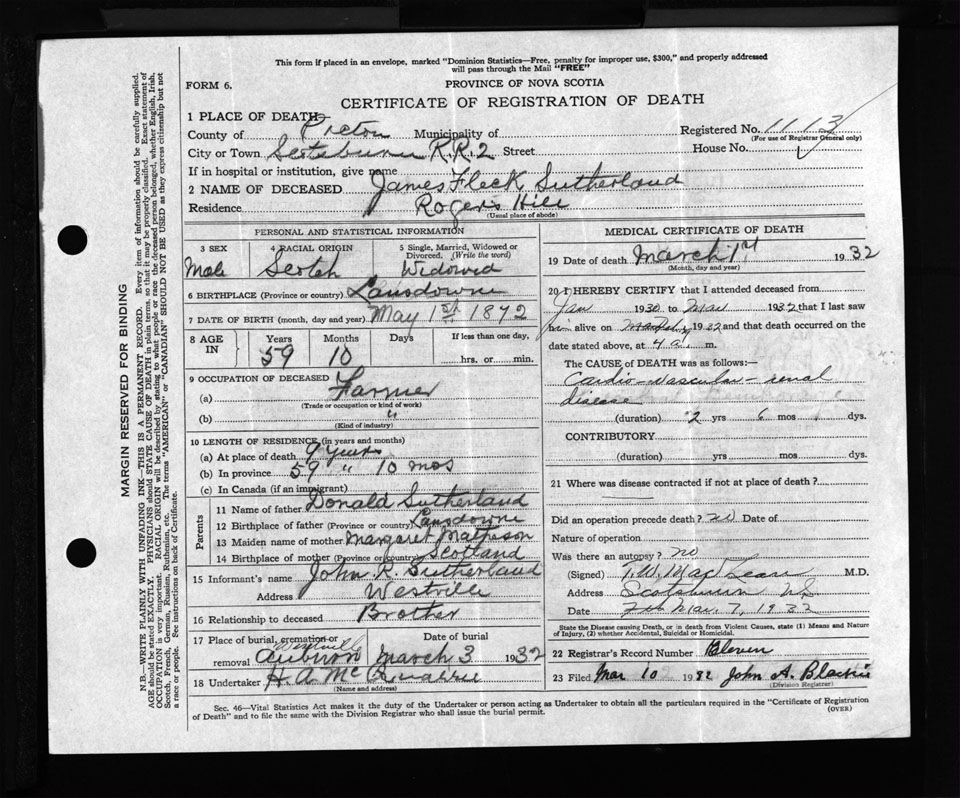 This form if placed in an envelope, marked "Dominion Statistics—Free, penalty for improper use, $300," and properly addressed
will pass through the Mail "FREE"
FORM 6.
PROVINCE OF NOVA SCOTIA
CERTIFICATE OF REGISTRATION OF DEATH
1 PLACE OF DEATH
County of Pictou Municipality of
Registered No. 1113
(For use of Registrar General only)
City or Town Scotsburn R.R.2 Street
House No.
If in hospital or institution, give name
2 NAME OF DECEASED James Fleck Sutherland
Residence Rogers Hill
(Usual place of abode)
PERSONAL AND STATISTICAL INFORMATION
3 SEX Male
4 RACIAL ORIGIN Scotch
5 Single, Married, Widowed or Divorced. (Write the word) Widowed
6 BIRTHPLACE (Province or country) Lansdowne
7 DATE OF BIRTH (month, day and year) May 1st 1872
8 AGE IN
Years 59
Months 10
Days
If less than one day, hrs. or min.
9 OCCUPATION OF DECEASED
(a) Farmer
(Trade or occupation or kind of work)
(b) "
(Kind of industry)
10 LENGTH OF RESIDENCE (in years and months)
(a) At place of death 9 years
(b) In province 59 " 10 mos
(c) In Canada (if an immigrant)
Parents
11 Name of father Donald Sutherland
12 Birthplace of father (Province or country) Lansdowne
13 Maiden name of mother Margaret Matheson
14 Birthplace of mother (Province or country) Scotland
15 Informant's name John R. Sutherland
Address Westville
16 Relationship to deceased Brother
17 Place of burial, cremation or removal Westville Auburn
Date of burial March 3 1932
18 Undertaker H. A. McQuarrie
(Name and address)
MEDICAL CERTIFICATE OF DEATH
19 Date of death March 1st 1932
(Month, day and year)
20 I HEREBY CERTIFY that I attended deceased from
Jan 1930 to Mar 1932 that I last saw
alive on 1932 and that death occurred on the
date stated above, at 4 a. m.
The CAUSE OF DEATH was as follows:—
Cardio-vascular-renal
disease
(duration) 2 yrs 6 mos dys.
CONTRIBUTORY
(duration) yrs. mos. dys.
21 Where was disease contracted if not at place of death?
Did an operation precede death? no Date of
Nature of operation
Was there an autopsy? no
(Signed) T. W. MacLean M.D.
Address Scotsburn NS
Date Mar. 7, 1932
State the Disease causing Death, or in death from Violent Causes, state (1) Means and Nature
of Injury, (2) whether Accidental, Suicidal or Homicidal.
22 Registrar's Record Number Eleven
23 Filed Mar 10 1932 John A. Blackie
(Division Registrar)
Sec. 46—Vital Statistics Act makes it the duty of the Undertaker or person acting as Undertaker to obtain all the particulars required in the "Certificate of Registration
of Death" and to file the same with the Division Registrar who shall issue the burial permit.
(OVER)
MARGIN RESERVED FOR BINDING
N.B.—WRITE PLAINLY WITH UNFADING INK—THIS IS A PERMANENT RECORD. Every item of information should be carefully supplied.
AGE should be stated EXACTLY. PHYSICIANS should STATE CAUSE OF DEATH in plain terms, so that it may be properly classified. Exact statement of
OCCUPATION is very important. RACIAL ORIGIN will be described by stating to what people or race the deceased person belonged, whether English, Irish,
Scotch, French, German, Russian, Ruthenian, etc. The terms "AMERICAN" or "CANADIAN" SHOULD NOT BE USED as they express citizenship but not
a race or people. See instructions on back of Certificate.